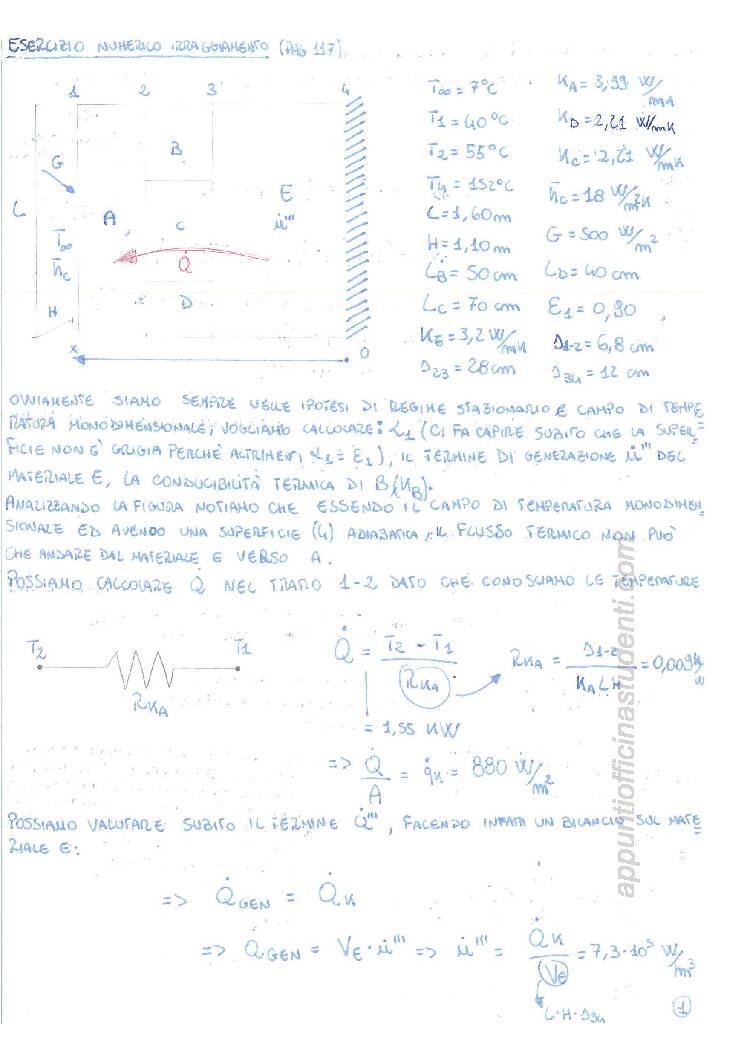 ESERCIZIO NUMERICO IRRAGGIAMENTO (PAG 117).
1 2 3 4
G
B
L
E
A
C
u̇'''
T∞
h̄c
Q̇
H
D
x
0
T∞ = 7°C
T1 = 40°C
T2 = 55°C
T4 = 152°C
L = 1,60 m
H = 1,10 m
LB = 50 cm
LC = 70 cm
KE = 3,2 W/mK
D23 = 28 cm
KA = 3,99 W/mK
KD = 2,21 W/mK
KC = 2,21 W/mK
h̄c = 18 W/m²K
G = 500 W/m²
LD = 40 cm
ε1 = 0,90
D1-2 = 6,8 cm
D34 = 12 cm
OVVIAMENTE SIAMO SEMPRE NELLE IPOTESI DI REGIME STAZIONARIO E CAMPO DI TEMPE
RATURA MONODIMENSIONALE; VOGLIAMO CALCOLARE: α1 (CI FA CAPIRE SUBITO CHE LA SUPER=
FICIE NON È GRIGIA PERCHÈ ALTRIMENTI α1 = ε1), IL TERMINE DI GENERAZIONE u̇''' DEL
MATERIALE E, LA CONDUCIBILITÀ TERMICA DI B (KB).
ANALIZZANDO LA FIGURA NOTIAMO CHE ESSENDO IL CAMPO DI TEMPERATURA MONODIMEN=
SIONALE ED AVENDO UNA SUPERFICIE (4) ADIABATICA, IL FLUSSO TERMICO NON PUÒ
CHE ANDARE DAL MATERIALE E VERSO A.
POSSIAMO CALCOLARE Q̇ NEL TRATTO 1-2 DATO CHE CONOSCIAMO LE TEMPERATURE
T2 T1
RKA
Q̇ = T2 - T1 / RKA
RKA = D1-2 / KA L H = 0,009 K/W
= 1,55 KW
=> Q̇ / A = q̇K = 880 W/m²
POSSIAMO VALUTARE SUBITO IL TERMINE Q̇''', FACENDO INFATTI UN BILANCIO SUL MATE=
RIALE E:
=> Q̇GEN = Q̇K
=> Q̇GEN = VE · u̇''' => u̇''' = Q̇K / VE = 7,3·10³ W/m³
L·H·D34
1
appuntiofficinastudenti.com